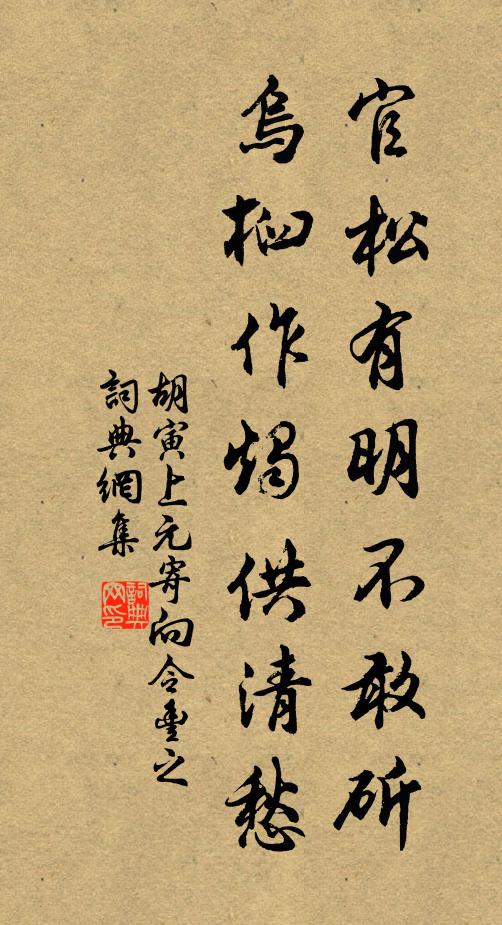 官松有明不敢斫
烏桕作燭供清愁
胡寅上元寄向令豐之
詞典網集
詞典
网印